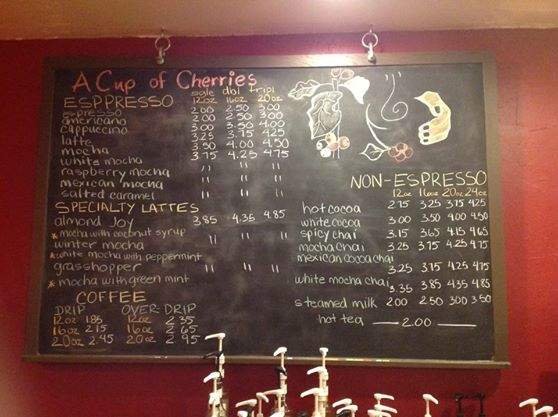 A Cup of Cherries
sgle dbl tripl
ESPPRESSO 12oz 16oz 20oz
espresso 2.00 2.50 3.00
americana 2.00 2.50 3.00
cappuccino 3.00 3.50 4.00
latte 3.25 3.75 4.25
mocha 3.50 4.00 4.50
white mocha 3.75 4.25 4.75
raspberry mocha " " "
mexican mocha " " "
salted caramel " " "
SPECIALTY LATTES
almond Joy 3.85 4.35 4.85
* mocha with coconut syrup
winter mocha " " "
* white mocha with peppermint
grasshopper " " "
* mocha with green mint
COFFEE
DRIP OVER-DRIP
12oz 1.85 12oz 2.35
16oz 2.15 16oz 2.65
20oz 2.45 20oz 2.95
NON-ESPRESSO
12oz 16oz 20oz 24oz
hot cocoa 2.75 3.25 3.75 4.25
white cocoa 3.00 3.50 4.00 4.50
spicy chai 3.15 3.65 4.15 4.65
mocha chai 3.25 3.75 4.25 4.75
mexican cocoa chai
3.25 3.75 4.25 4.75
white mocha chai 3.35 3.85 4.35 4.85
steamed milk 2.00 2.50 3.00 3.50
hot tea 2.00